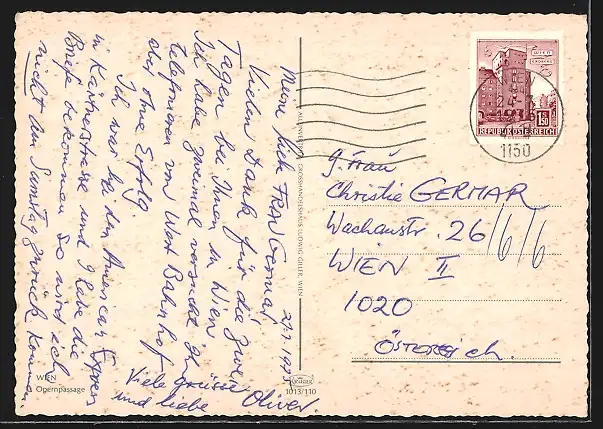 27.7.1971
Meine lieb FRAU Germar
Vielen Dank für die zwei
Tagen bei Ihnen in Wien
Ich habe zweimal versucht zu
telefonieren von West Bahnhof
aber ohne Erfolg
Ich war bei den American Express
in Kärtnerstrasse und habe die
Briefe bekommen So wird ich
nicht am Samstag zurück kommen
Viele grüsse
und liebe Oliver.
WIEN
Opernpassage
ALLEINVERTRIEB: GROSSHANDELSHAUS LUDWIG GEILER, WIEN
1013/110
WIEN
ERDBERG
1.50
REPUBLIK ÖSTERREICH
1150
g. Frau
Christie GERMAR
Wachaustr. 26/6/6
WIEN II
1020
ÖSTERREICH.